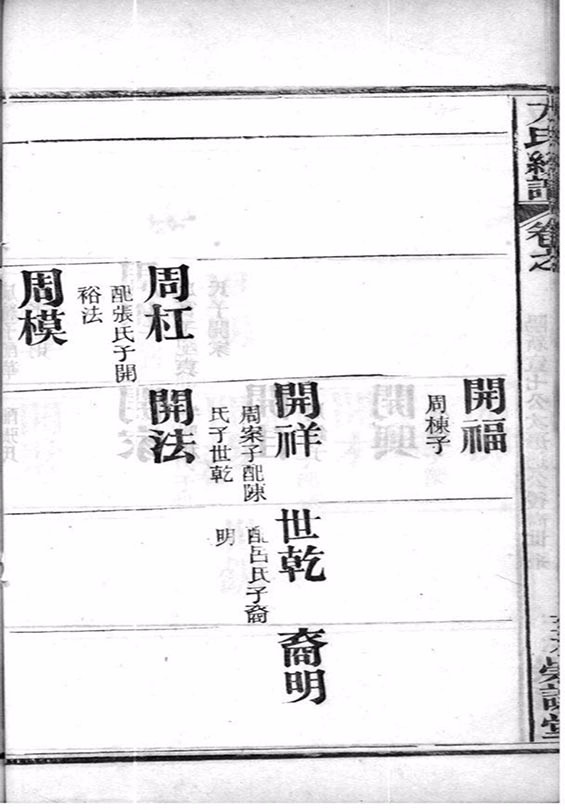 氏總譜 卷之
開福
周棟子
開祥
周案子配陳
氏子世乾
世乾
配呂氏子裔
明
裔明
周杠
配張氏子開
裕法
開法
周模